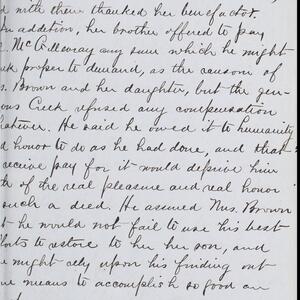 with them thanked her benefactor.
addition, her brother offered to pay
McGillivray any sum which he might
proper to demand, as the ransom of
Brown and her daughter, but the gen-
Creek refused any compensation
whatever. He said he owed it to humanity
honor to do as he had done, and that
receive pay for it would deprive him
of the real pleasure and real honor
such a deed. He assured Mrs. Brown
he would not fail to use his best
to restore to her her son, and
might rely upon his finding out
means to accomplish so good an